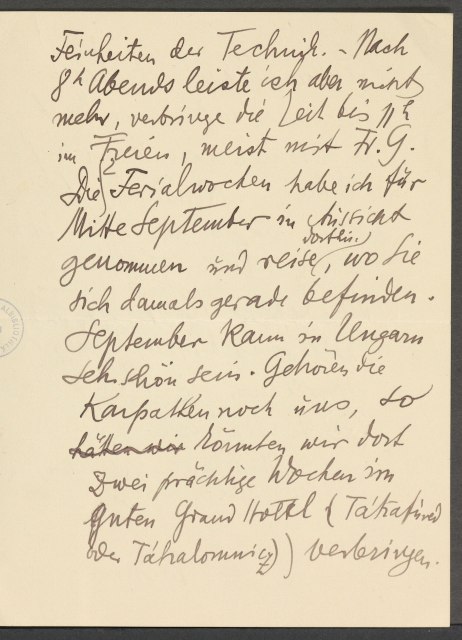 Feinheiten der Technik. – Nach
8h Abends leiste ich aber nichts
mehr, verbringe die Zeit bis 11h
im Freien, meist mit Fr. G.
Die 2 Ferialwochen habe ich für
Mitte September in Aussicht
genommen und reise dorthin, wo Sie
sich damals gerade befinden.
September kann in Ungarn
sehr schön sein. Gehören die
Karpathen noch uns, so
hätten wir könnten wir dort
zwei prächtige Wochen im
guten Grand Hottel (Tátrafüred
oder Tátralomnicz)) verbringen.